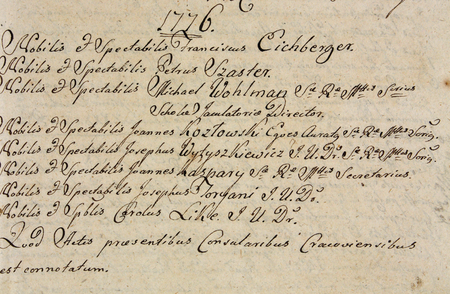 1776.
Nobilis & Spectabilis Franciscus Eichberger.
Nobilis & Spectabilis Petrus Szaster.
Nobilis & Spectabilis Michael Wohlman Sæ Ræ Mttis Serius
Scholæ Jaculatoriæ Director.
Nobilis & Spectabilis Joannes Kozłowski Eques Auratq Sæ Ræ Mttis
Nobilis & Spectabilis Josephus Wytyszkiewicz J. U. Dr. Sæ Ræ Mttis
Nobilis & Spectabilis Joannes Kaspary Sæ Ræ Mttis Secretarius.
Nobilis & Spectabilis Josephus Toryani J. U. Dr.
Nobilis & Spblis Carolus Like J. U. Dr.
Quod Actis præsentibus Consularibus Cracoviensibus
est connotatum.